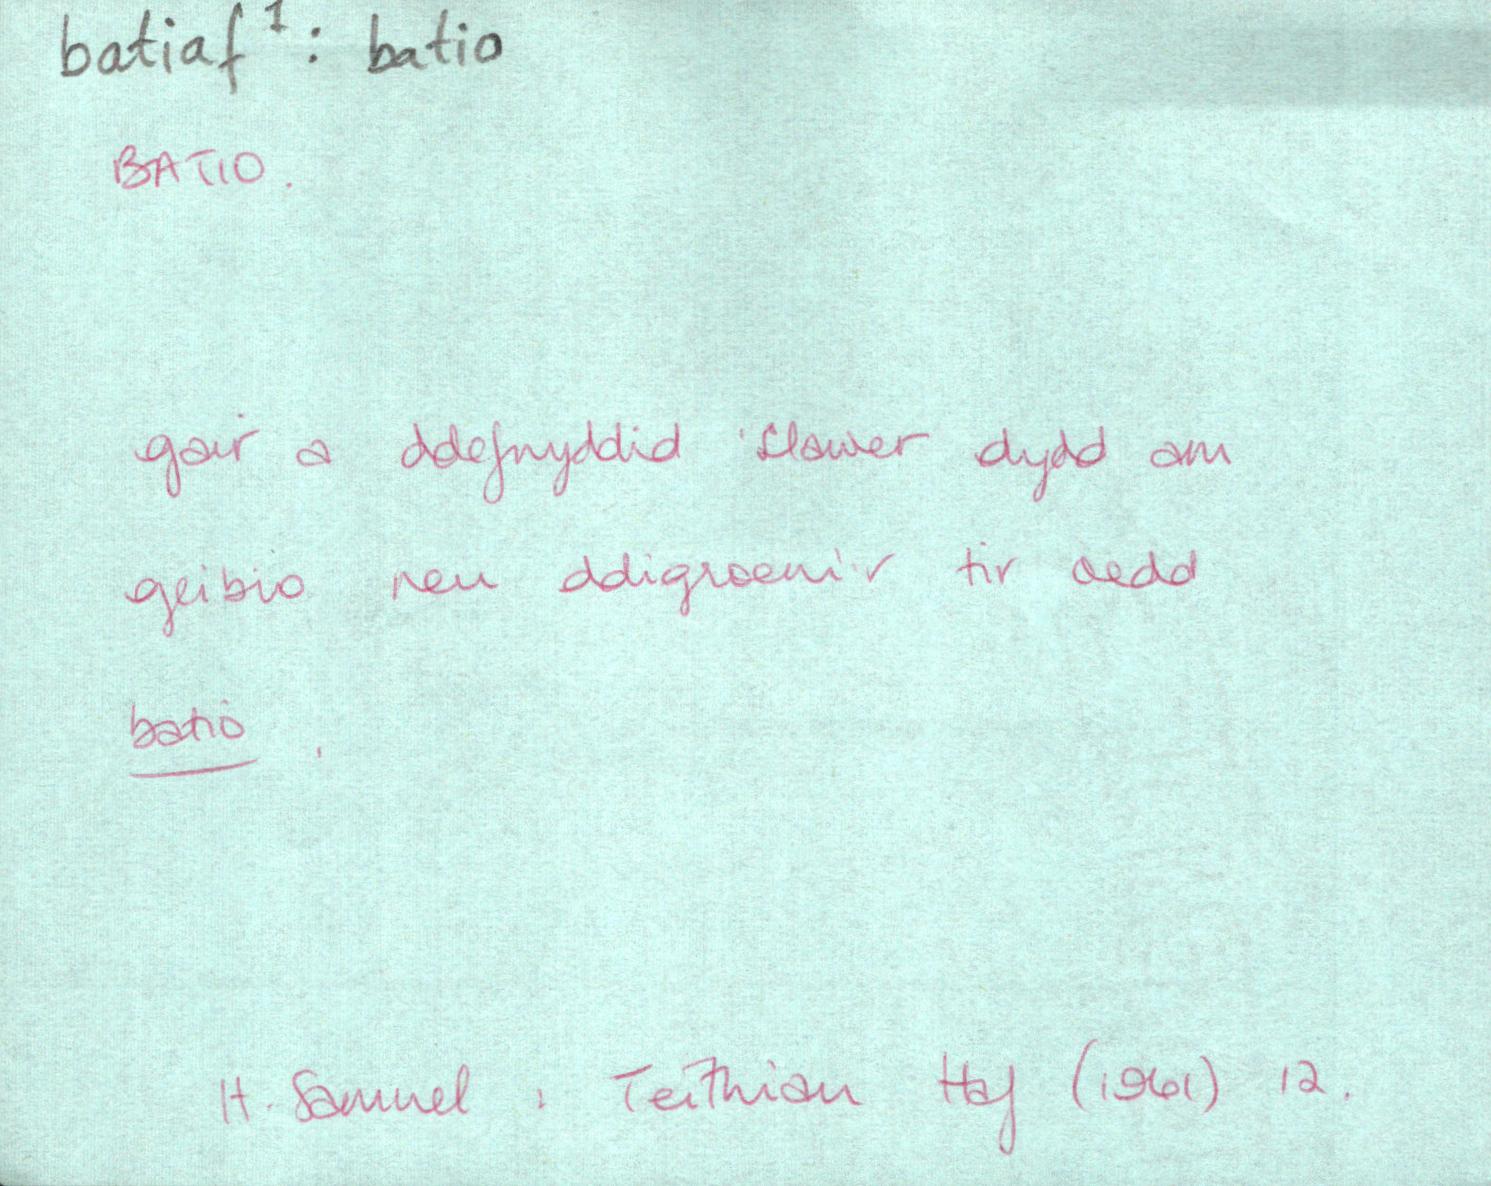 batiaf¹: batio
BATIO.
gair a ddefnyddid 'slawer dydd am
geibio neu ddigroeni'r tir oedd
batio.
H. Samuel, Teithian Haf (1961) 12.